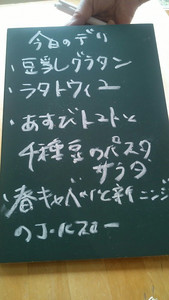 今日のデリ
・豆乳グラタン
・ラタトウィユ
・あすびトマトと
千種豆のパスタ
サラダ
・春キャベツと新ニンジン
のコールスロー